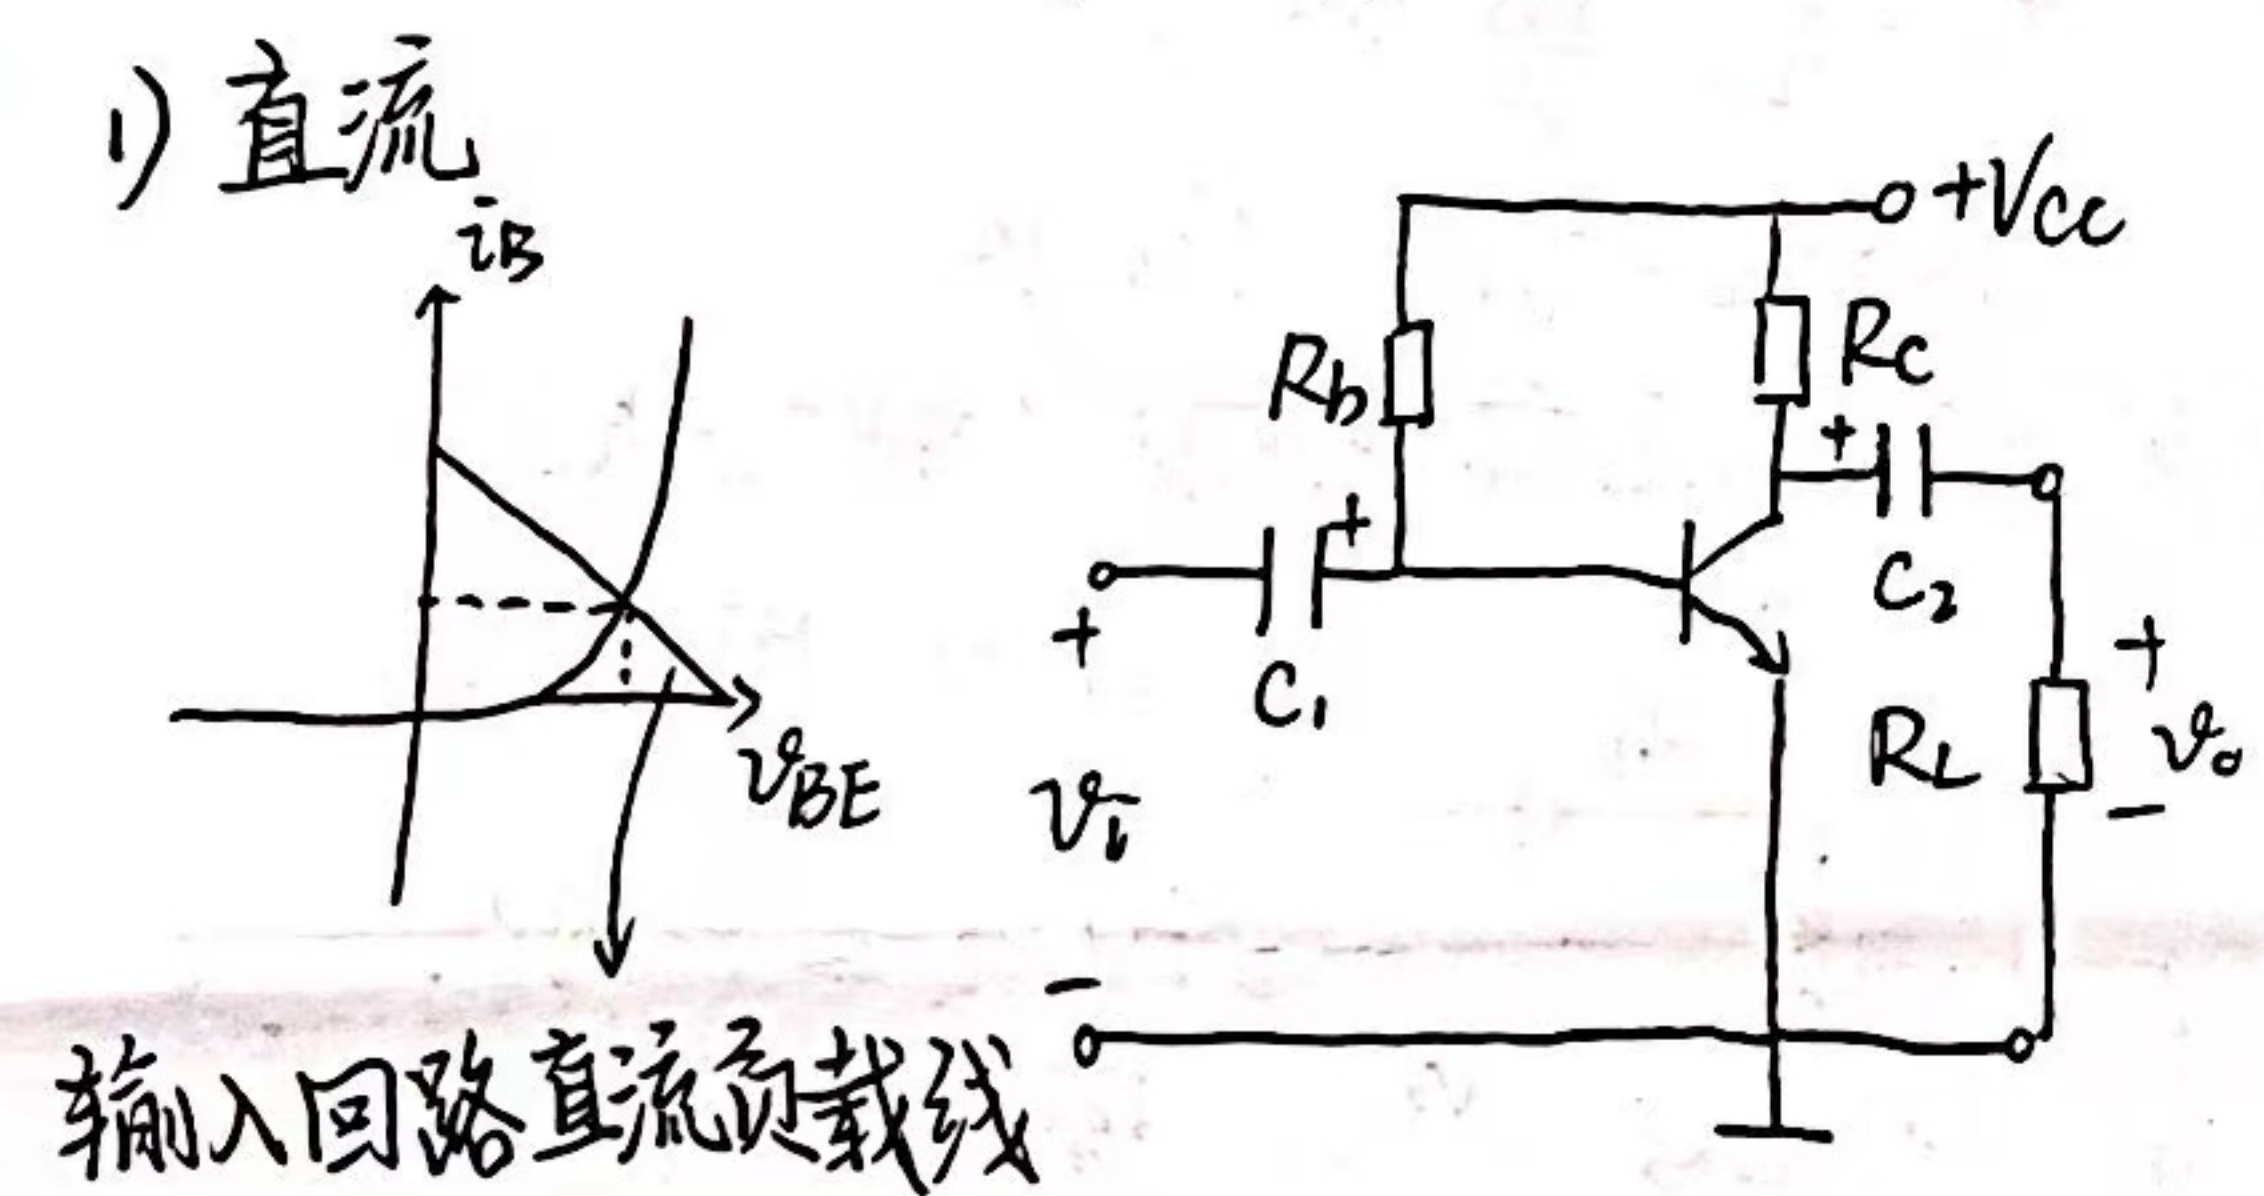 1) 直流
iB
vBE
输入回路直流负载线
+VCC
Rb
RC
+
C2
+
C1
+
vi
-
RL
+
vo
-